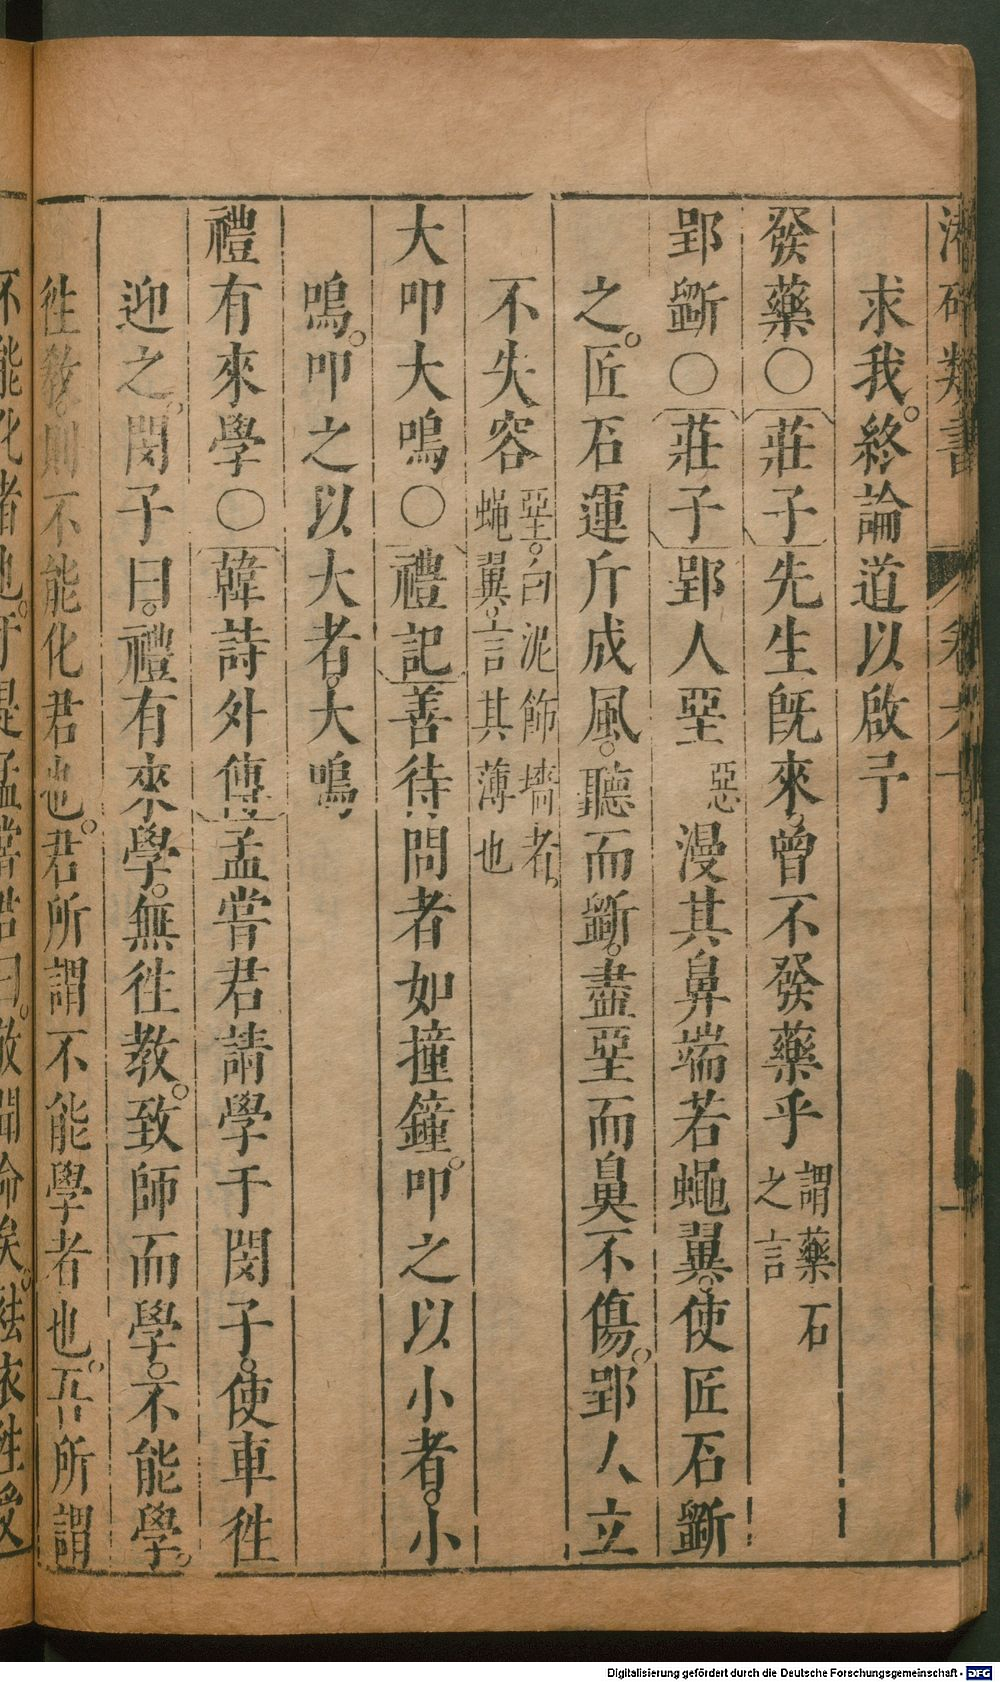 潛確類書
求我。終論道以啟予
發藥○莊子先生旣來。曾不發藥乎謂藥石之言
郢斲○莊子郢人堊惡漫其鼻端若蠅翼。使匠石斲
之。匠石運斤成風。聽而斲。盡堊而鼻不傷。郢人立
不失容堊。白泥飾墻者。蠅翼。言其薄也
大叩大鳴○禮記善待問者如撞鐘。叩之以小者。小
鳴。叩之以大者。大鳴
禮有來學○韓詩外傳孟嘗君請學于閔子。使車徃
迎之。閔子曰。禮有來學。無徃教。致師而學。不能學。
徃教。則不能化君也。君所謂不能學者也。吾所謂
不能化者也。于是孟嘗君曰。敬聞命矣。袪衣徃受
Digitalisierung gefördert durch die Deutsche Forschungsgemeinschaft - DFG